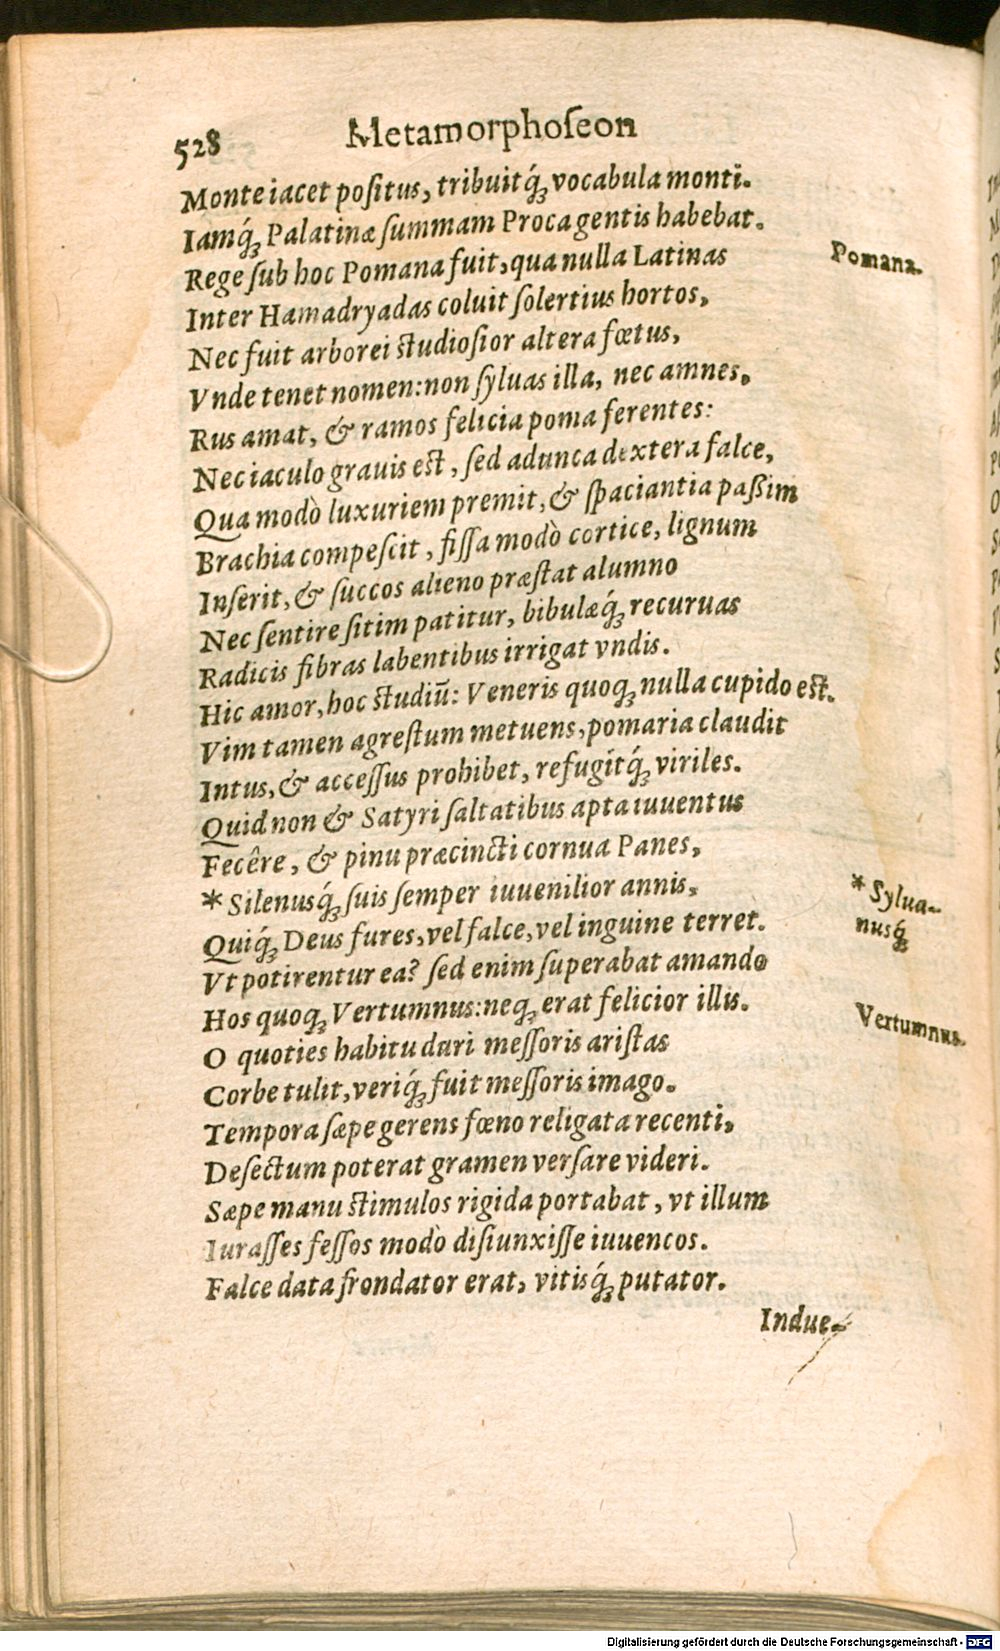 528 Metamorphoſeon
Monte iacet poſitus, tribuitq́ꝫ vocabula monti.
Iamq́ꝫ Palatinæ ſummam Proca gentis habebat.
Rege ſub hoc Pomana fuit, qua nulla Latinas
Pomana.
Inter Hamadryadas coluit ſolertius hortos,
Nec fuit arborei ſtudioſior altera fœtus,
Vnde tenet nomen: non ſyluas illa, nec amnes,
Rus amat, & ramos felicia poma ferentes:
Nec iaculo grauis eſt, ſed adunca dextera falce,
Qua modò luxuriem premit, & ſpaciantia paßim
Brachia compeſcit, fiſſa modò cortice, lignum
Inſerit, & ſuccos alieno præſtat alumno
Nec ſentire ſitim patitur, bibulæq́ꝫ recuruas
Radicis fibras labentibus irrigat vndis.
Hic amor, hoc ſtudiū: Veneris quoqꝫ nulla cupido eſt.
Vim tamen agreſtum metuens, pomaria claudit
Intus, & acceſſus prohibet, refugitq́ꝫ viriles.
Quid non & Satyri ſaltatibus apta iuuentus
Fecêre, & pinu præcincti cornua Panes,
* Silenusq́ꝫ ſuis ſemper iuuenilior annis,
* Sylua-
nusq́ꝫ
Quiq́ꝫ Deus fures, vel falce, vel inguine terret.
Vt potirentur ea? ſed enim ſuperabat amando
Hos quoqꝫ Vertumnus: neqꝫ erat felicior illis.
Vertumnus.
O quoties habitu duri meſſoris ariſtas
Corbe tulit, veriq́ꝫ fuit meſſoris imago.
Tempora ſæpe gerens fœno religata recenti,
Deſectum poterat gramen verſare videri.
Sæpe manu ſtimulos rigida portabat, vt illum
Iuraſſes feſſos modò diſiunxiſſe iuuencos.
Falce data frondator erat, vitisq́ꝫ putator.
Indue-
Digitalisierung gefördert durch die Deutsche Forschungsgemeinschaft - DFG